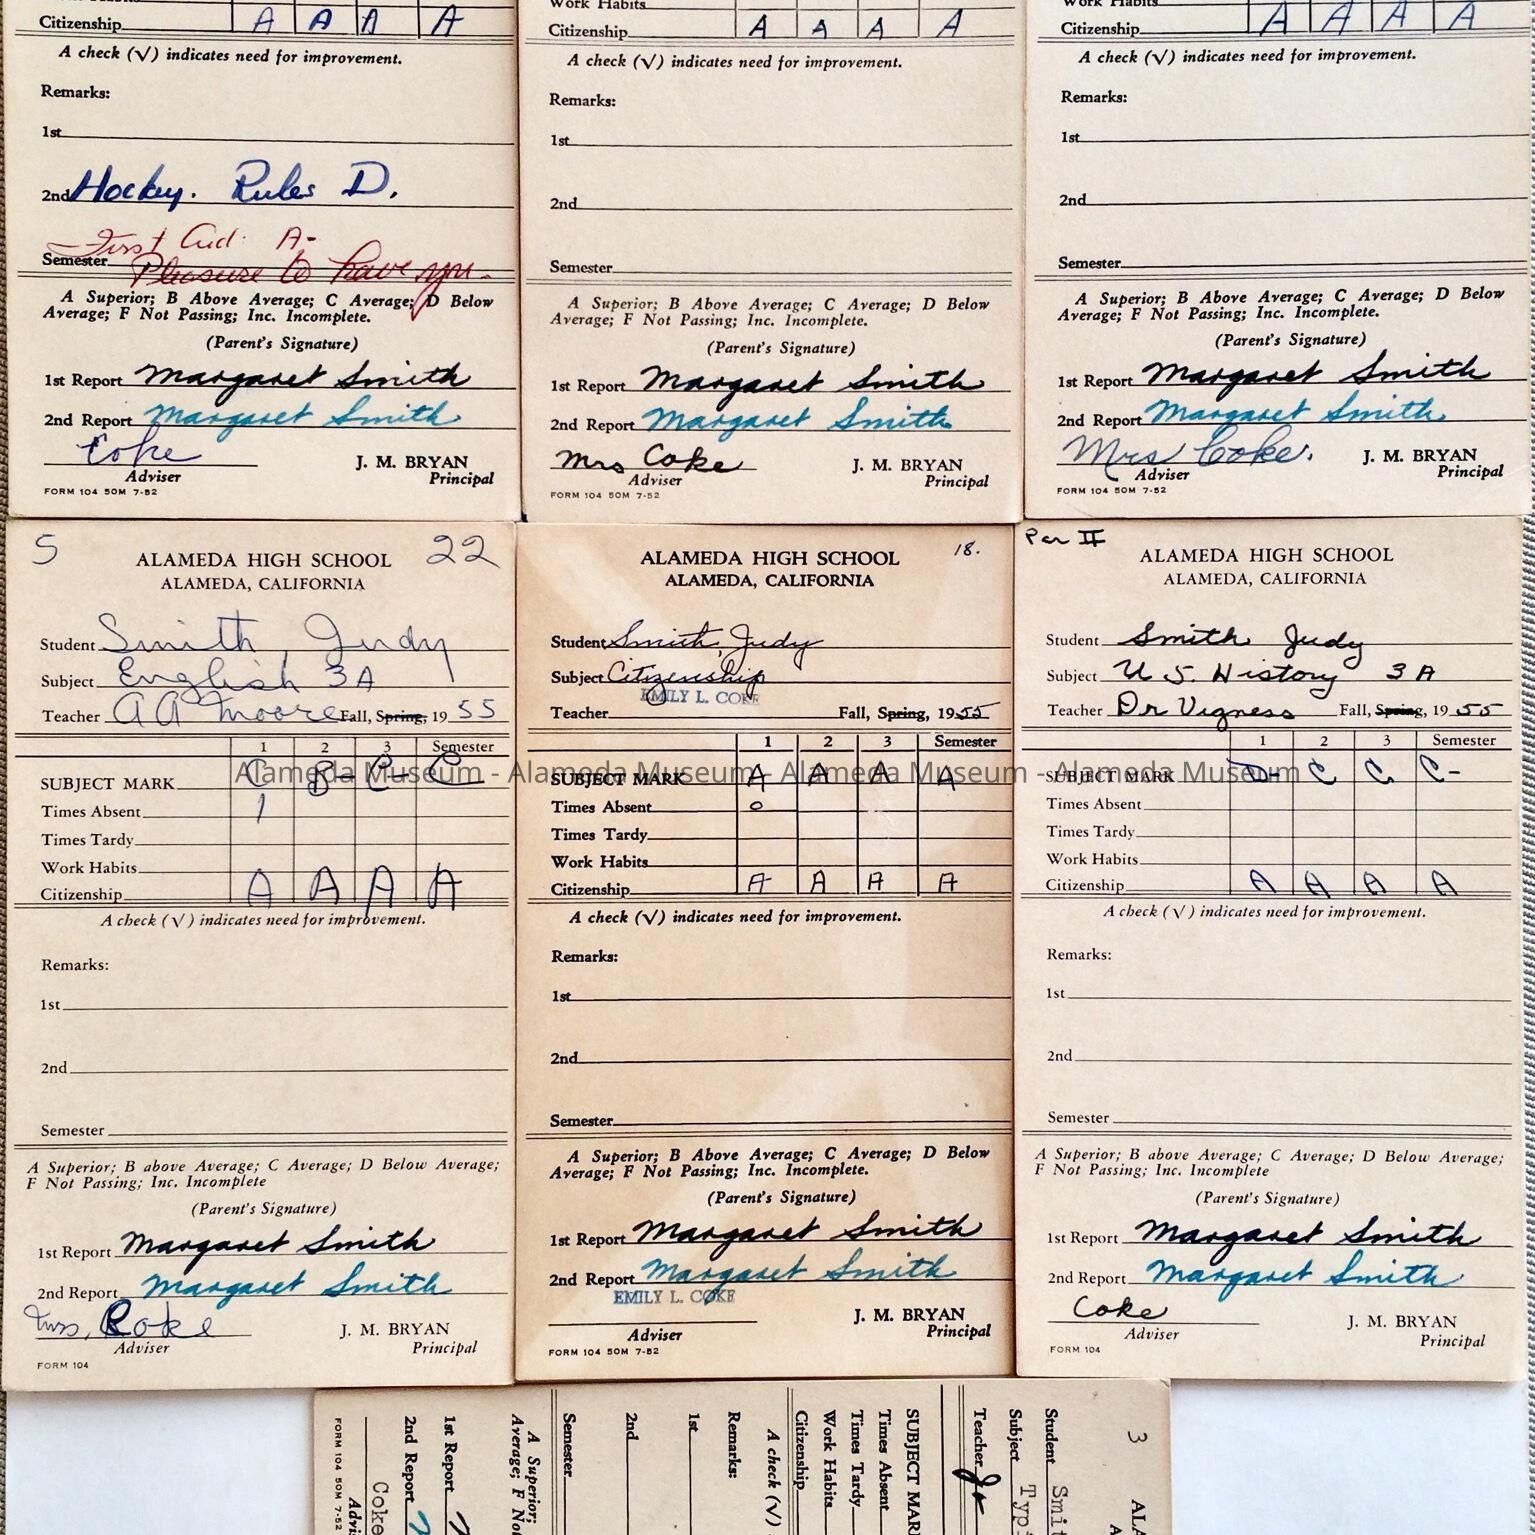 Citizenship A A A A
A check (√) indicates need for improvement.
Remarks:
1st
2nd Hockey. Rules D.
First Aid: A-
Semester Pleasure to have you.
A Superior; B Above Average; C Average; D Below
Average; F Not Passing; Inc. Incomplete.
(Parent's Signature)
1st Report Margaret Smith
2nd Report Margaret Smith
Coke
J. M. BRYAN
Adviser Principal
FORM 104 50M 7-52
Work Habits
Citizenship A A A A
A check (√) indicates need for improvement.
Remarks:
1st
2nd
Semester
A Superior; B Above Average; C Average; D Below
Average; F Not Passing; Inc. Incomplete.
(Parent's Signature)
1st Report Margaret Smith
2nd Report Margaret Smith
Mrs Coke J. M. BRYAN
Adviser Principal
FORM 104 50M 7-52
Work Habits
Citizenship A A A A
A check (√) indicates need for improvement.
Remarks:
1st
2nd
Semester
A Superior; B Above Average; C Average; D Below
Average; F Not Passing; Inc. Incomplete.
(Parent's Signature)
1st Report Margaret Smith
2nd Report Margaret Smith
Mrs Coke. J. M. BRYAN
Adviser Principal
FORM 104 50M 7-52
5 ALAMEDA HIGH SCHOOL 22
ALAMEDA, CALIFORNIA
Student Smith, Judy
Subject English 3A
Teacher A A Moore Fall, Spring, 19 55
1 2 3 Semester
SUBJECT MARK C B- C- C
Times Absent 1
Times Tardy
Work Habits
Citizenship A A A A
A check (√) indicates need for improvement.
Remarks:
1st
2nd
Semester
A Superior; B above Average; C Average; D Below Average;
F Not Passing; Inc. Incomplete
(Parent's Signature)
1st Report Margaret Smith
2nd Report Margaret Smith
Mrs, Coke J. M. BRYAN
Adviser Principal
FORM 104
ALAMEDA HIGH SCHOOL 18.
ALAMEDA, CALIFORNIA
Student Smith, Judy
Subject Citizenship
EMILY L. COKE
Teacher Fall, Spring, 1955
1 2 3 Semester
SUBJECT MARK A A A A
Times Absent 0
Times Tardy
Work Habits
Citizenship A A A A
A check (√) indicates need for improvement.
Remarks:
1st
2nd
Semester
A Superior; B Above Average; C Average; D Below
Average; F Not Passing; Inc. Incomplete.
(Parent's Signature)
1st Report Margaret Smith
2nd Report Margaret Smith
EMILY L. COKE
J. M. BRYAN
Adviser Principal
FORM 104 50M 7-52
Per II
ALAMEDA HIGH SCHOOL
ALAMEDA, CALIFORNIA
Student Smith Judy
Subject U S. History 3A
Teacher Dr Vigness Fall, Spring, 19 55
1 2 3 Semester
SUBJECT MARK D- C C C-
Times Absent
Times Tardy
Work Habits
Citizenship A A A A
A check (√) indicates need for improvement.
Remarks:
1st
2nd
Semester
A Superior; B above Average; C Average; D Below Average;
F Not Passing; Inc. Incomplete
(Parent's Signature)
1st Report Margaret Smith
2nd Report Margaret Smith
Coke J. M. BRYAN
Adviser Principal
FORM 104
Alameda Museum - Alameda Museum - Alameda Museum - Alameda Museum
3 ALA
Student Smit
Subject Typ
Teacher Jo
SUBJECT MAR
Times Absent
Times Tardy
Work Habits
Citizenship
A check (√)
Remarks:
1st
2nd
Semester
A Superior;
Average; F No
1st Report
2nd Report
Coke
Advi
FORM 104 50M 7-52